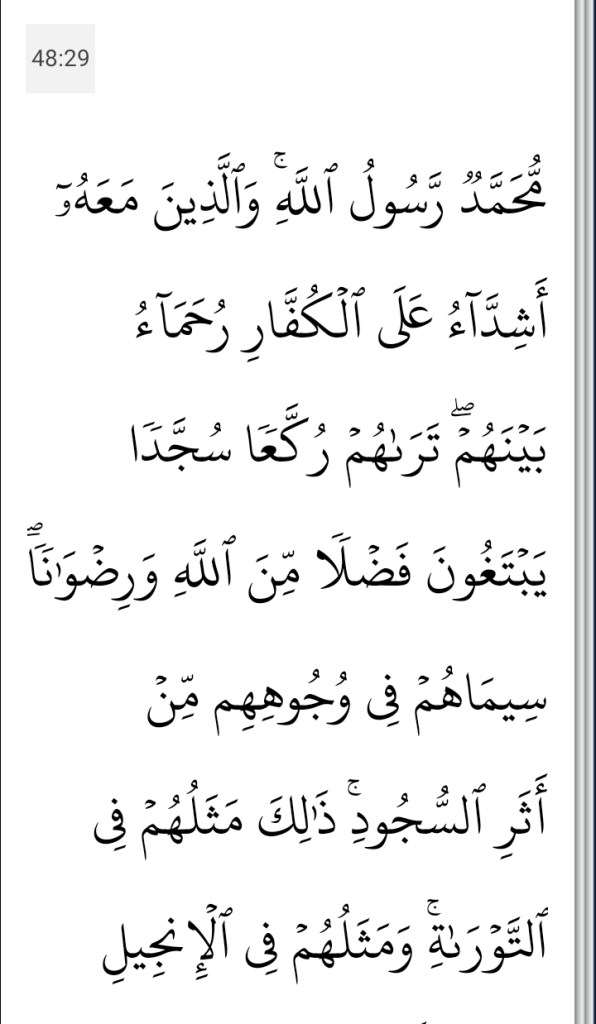 48:29
مُّحَمَّدٌ رَّسُولُ ٱللَّهِۚ وَٱلَّذِينَ مَعَهُۥٓ
أَشِدَّآءُ عَلَى ٱلۡكُفَّارِ رُحَمَآءُ
بَيۡنَهُمۡۖ تَرَىٰهُمۡ رُكَّعٗا سُجَّدٗا
يَبۡتَغُونَ فَضۡلٗا مِّنَ ٱللَّهِ وَرِضۡوَٰنٗاۖ
سِيمَاهُمۡ فِي وُجُوهِهِم مِّنۡ
أَثَرِ ٱلسُّجُودِۚ ذَٰلِكَ مَثَلُهُمۡ فِي
ٱلتَّوۡرَىٰةِۚ وَمَثَلُهُمۡ فِي ٱلۡإِنجِيلِ